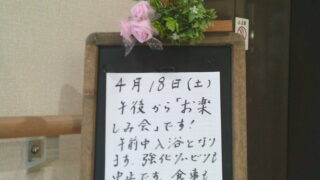 4月18日(土)
午後から「お楽
しみ会」です!
午前中入浴となり
ます。強化リハビリも
中止です。食事も